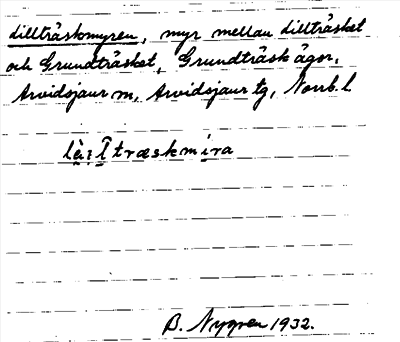 Lillträskmyren, myr mellan Lillträsket
och Grundträsket, Grundträsk ägor,
Arvidsjaur sn, Arvidsjaur tg, Norrb. l
træskmira
B. Nygren 1932.